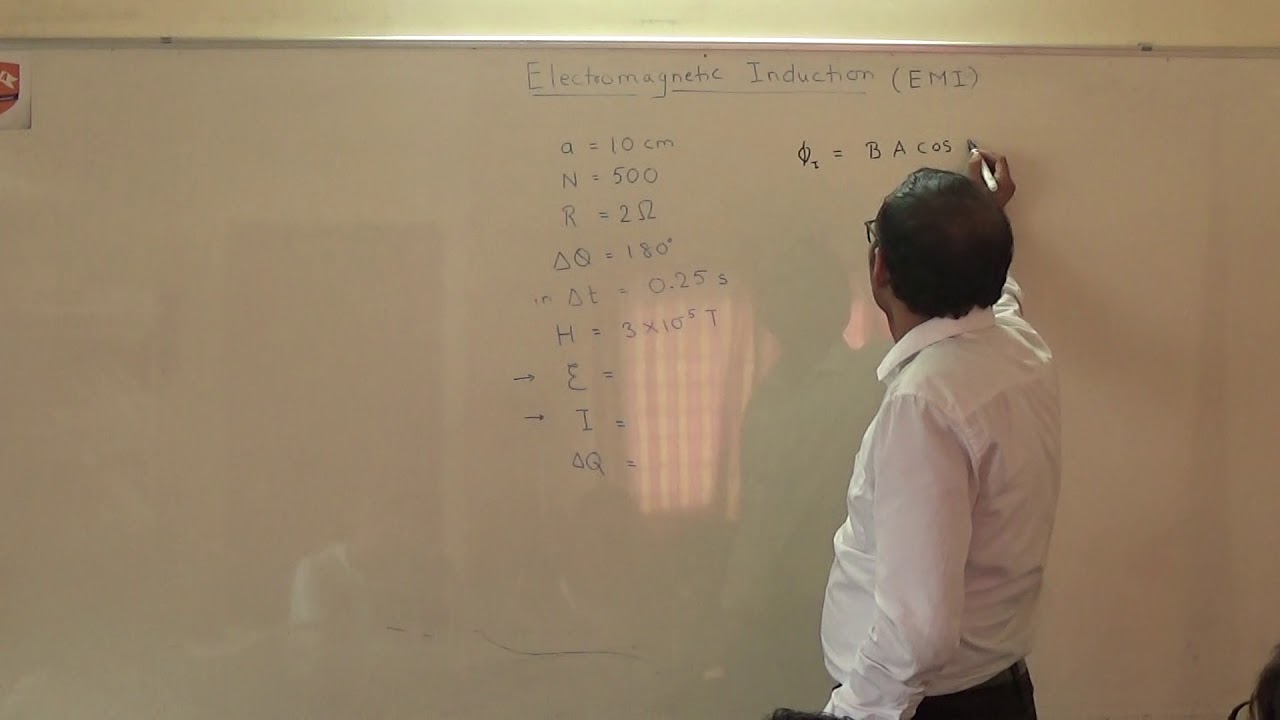 Electromagnetic Induction (EMI)
a = 10 cm
N = 500
R = 2Ω
ΔQ = 180°
in Δt = 0.25 s
H = 3×10⁻⁵ T
→ ξ =
→ I =
ΔQ =
ϕ_I = B A cos